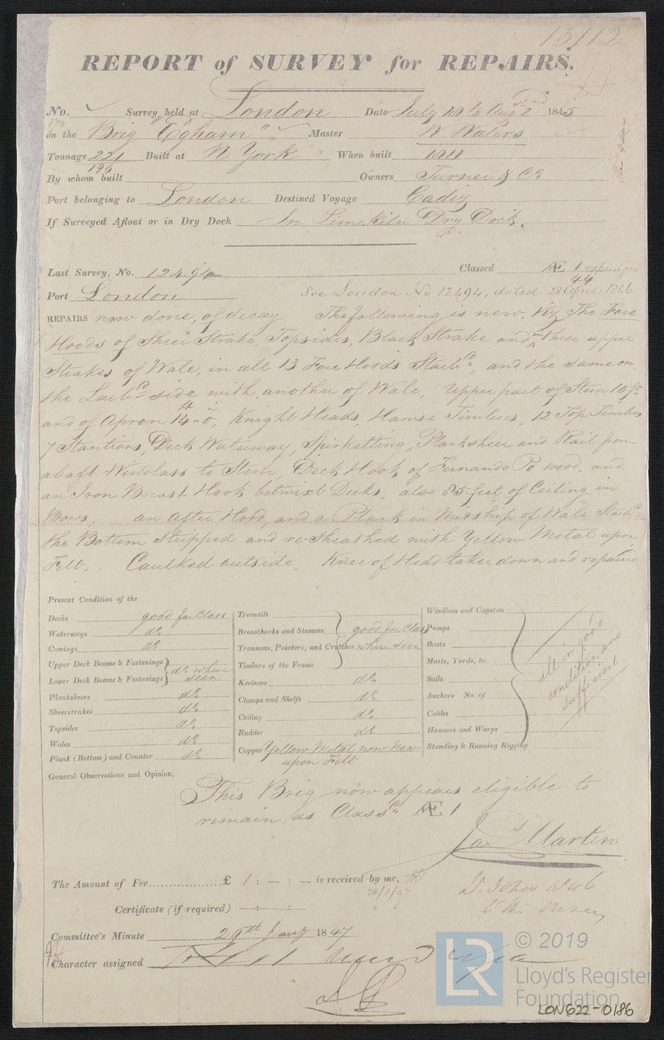 15112
REPORT of SURVEY for REPAIRS.
No. Survey held at London Date July 10 to Aug 2nd 1845
on the Brig "Egham" Master W Waters
Tonnage 221 Built at N York When built 1811
196
By whom built Owners Turner & Co
Port belonging to London Destined Voyage Cadiz
If Surveyed Afloat or in Dry Dock In Limekiln Dry Dock.
Last Survey, No. 12494 Classed Æ 1 expunged
44
Port London See London No 12494, dated 28 April 1846
REPAIRS now done, of decay: The following is new, Viz The Fore
Hoods of Sheer Strake, Topsides, Black Strake and three upper
Strakes of Wale, in all 13 Fore Hoods Starbd, and the same on
the Larbd side with another of Wale, Upper part of Stem 10 ft
and of Apron 14.0, Knight Heads, Hawse Timbers, 12 Top Timbers
7 Stantions, Deck Waterway, Spirketting, Planksheer and Rail from
abaft Windlass to Stem, Deck Hook of Fernando Po wood, and
an Iron Breast Hook betwixt Decks, also 85 feet of Ceiling in
Bows, an After Hood, and a Plank in Midship of Wale Starbd
the Bottom Stripped and re-Sheathed with Yellow Metal upon
Felt. Caulked outside. Knee of Head taken down and repaired
Present Condition of the
Decks good for Class
Waterways do
Comings do
Upper Deck Beams & Fastenings
Lower Deck Beams & Fastenings do where seen
Planksheers do
Sheerstrakes do
Topsides do
Wales do
Plank (Bottom) and Counter do
Treenails
Breasthooks and Stemson good for Class
Transoms, Pointers, and Crutches where seen
Timbers of the Frame
Keelsons do
Clamps and Shelfs do
Ceiling do
Rudder do
Copper Yellow Metal now New
upon Felt
Windlass and Capstan
Pumps
Boats
Masts, Yards, &c.
Sails
Anchors No. of
Cables
Hawsers and Warps
Standing & Running Rigging
all in good
condition and
sufficient
General Observations and Opinion,
This Brig now appears eligible to
remain as Classed Æ 1
Jas Martin
The Amount of Fee £ 1 : - : - is received by me,
Certificate (if required)
Committee's Minute 29th Jany 1847
Character assigned
© 2019
LR
Lloyd's Register
Foundation
LON622-0186